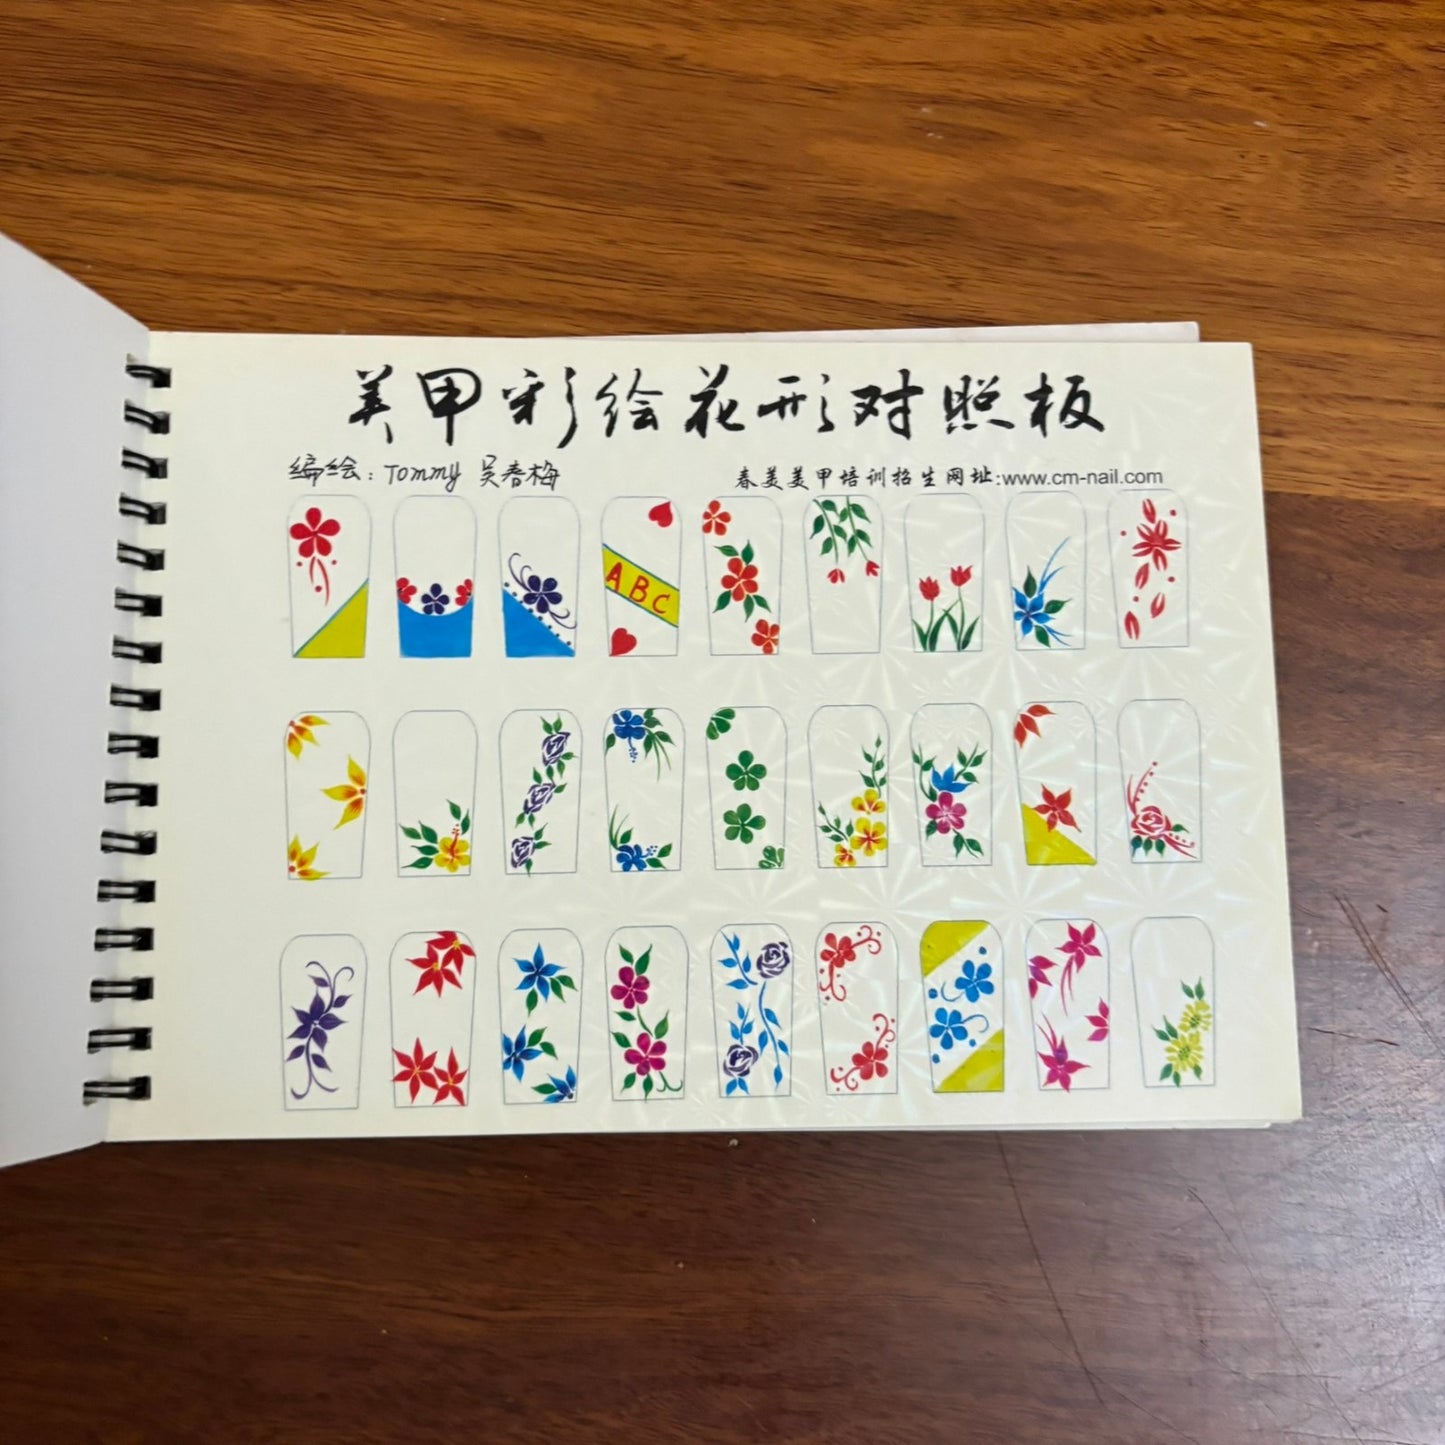 美甲彩绘花形对照板
编绘：Tommy 吴春梅
春美美甲培训招生网址:www.cm-nail.com
ABC